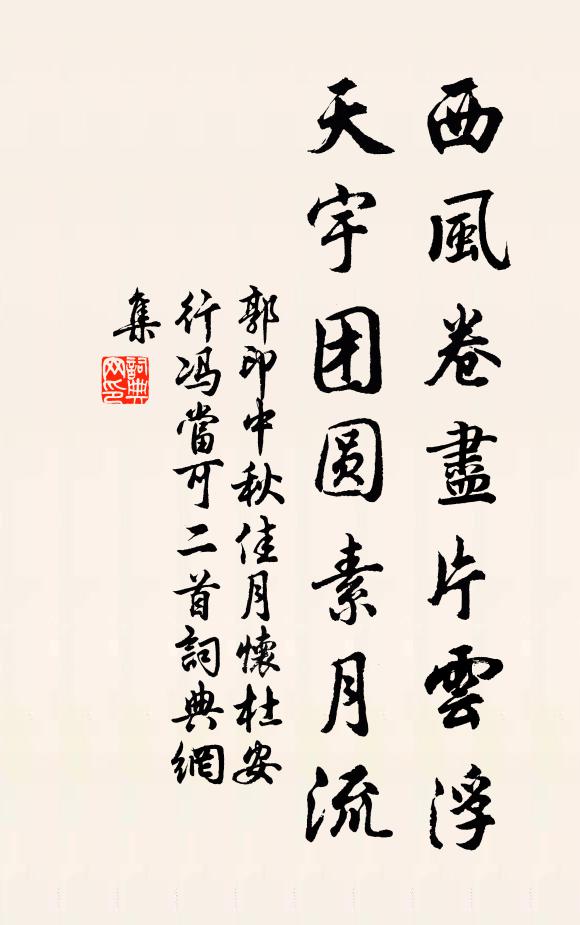 西風卷盡片雲浮
天宇团圆素月流
郭印中秋佳月懷杜安
行馮當可二首詞典網
集
詞典
网印